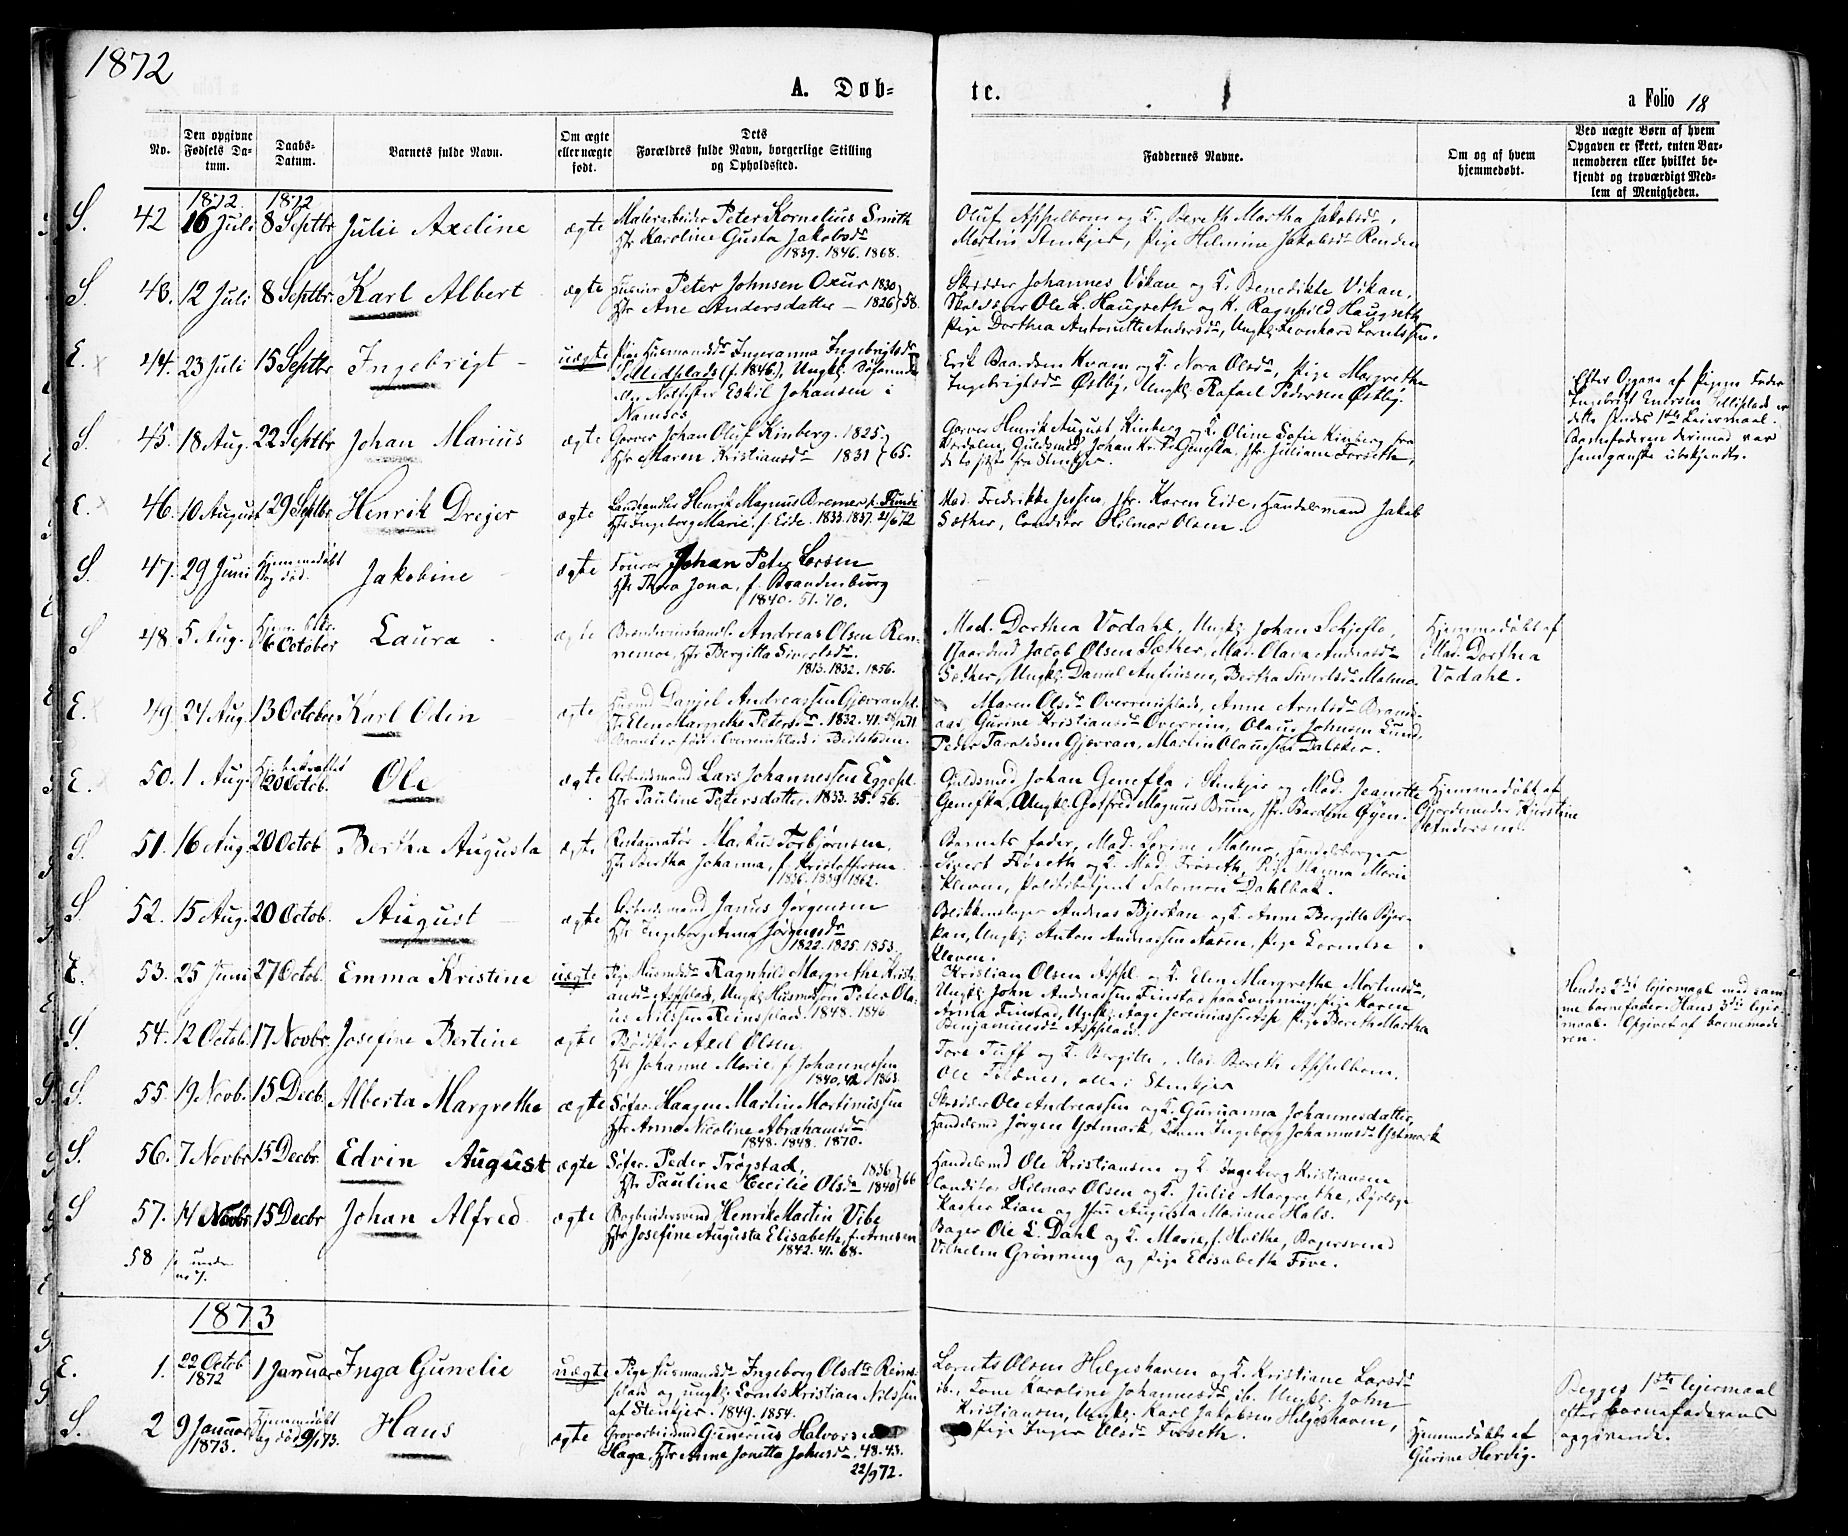 1872
A. Døb-
te.
a Folio 18
No.
Den opgivne
Fødsels Da-
tum.
Daabs-
Datum.
Barnets fulde Navn.
Om ægte
eller uægte
født.
Dets
Forældres fulde Navn, borgerlige Stilling
og Opholdssted.
Faddernes Navne.
Om og af hvem
hjemmedøbt.
Ved uægte Børn af hvem
Opgaven er skeet, enten Bar-
nemoderen eller hvilket be-
kjendt og troværdigt Med-
lem af Menigheden.
1872 1872
S. 42 16 Juli 8 Septbr Julie Axeline ægte Malerarbeider Peter Kornelius Smith
Hr Karoline Gusta Jakobsdr
1839. 1846. 1868.
Oluf Appelbom og K. Bereth Martha Jakobsdr,
Martin Stenkjer, Pige Helmine Jakobsdr Renden
S. 43. 12 Juli 8 Septbr. Karl Albert ægte Peter Johnsen Oxur 1830
Hr Ane Andersdatter – 1826 58.
Skræder Johannes Vikan og K. Benedikte Vikan,
Ole L. Haugseth og K. Ragnhild Haugseth
Pige Dorthea Antonette Andersdr, Ungk. Leonhard Lorntssen.
E. 44. 23 Juli 15 Septbr Ingebrigt uægte Pige Husmandsdr Ingeranna Ingebrigtsdr
Sellidplads (f. 1846), Ungk. Søfarende
Eskil Johansen i
Namsos
Erik Baardsen Kvam og K. Nora Olsdr, Pige Margrethe
Ingebrigtsdr Østby, Ungk. Rafael Pedersen Østby.
Efter Opgave af Pigens Fader
Ingebrigt Sellsplads er
dette hendes 1ste Leiermaal.
Barnefaderen derimod var
ham ganske ubekjendt.
S. 45. 18 Aug. 22 Septbr Johan Marius ægte Garver Johan Oluf Kinberg. 1825
Hr Maren Kristiansdr 1831 65.
Garver Henrik August Kinberg og K. Oline Sofie Kinberg fra
Værdalen, Guldsmed Johan Kr. P. Genefka, Jfr. Juliane Forseth,
de to sidste fra Stenkjer.
E. 46. 10 August 29 Septbr Henrik Drejer ægte Landhandler Henrik Magnus Bremer p. Sunde
Hr Ingeborg Marie f. Eide. 1833. 1837. 21/6 72
Mad. Fredrikke Jessen, Jfr. Karen Eide, Handelsmand Jakob
Sæther, Conditor Hilmar Olsen.
S. 47. 29 Juni Hjemmedøbt
og død. Jakobine ægte Johan Peter Larsen
Hr Thora Jona, f. Brandenburg
1840. 51. 70.
S 48. 5 Aug. 6 October Laura ægte Andreas Olsen Ren-
nemoe, Hr Bergitta Sivertsdr.
1813. 1832. 1856.
Mad. Dorthea Vodahl, Ungk. Johan Schjeflo,
Gaardmd Jacob Olsen Sæther, Mad. Olava Andreasdr
Sæther, Ungk. Daniel Antonsen, Bertha Sivertsdr Malmo.
Hjemmedøbt af
Mad. Dorthea
Vodahl.
E. 49 24 Aug. 13 October Karl Odin ægte Husmd Daniel Andreassen Gjævranpl.
Hr Elen Margrethe Petersdr. 1832. 41.
Barnet er født i Overreinsplads i Beitstaden.
Maren Olsdr Overreinsplads, Anne Arntsdr Brands-
aas, Gurine Kristiansdr Overrein, Olaus Johnsen Lund,
Peder Taraldsen Gjævran, Martin Olaussen Dalsker.
E. 50. 1 Aug. 20 Octob. Ole ægte Arbeidsmand Lars Johannessen Eggepl.
Hr Pauline Petersdatter. 1833. 35. 56.
Guldsmed Johan Genefka i Stenkjer og Mad. Jeanette
Genefka, Ungk. Gotfred Magnus Brun, Jfr. Bardine Øyen.
Hjemmedøbt af
Gjordemoder Kjerstine
Andersen.
S. 51. 16 Aug. 20 Octob Bertha Augusta ægte Restauratør Markus Torbjørnsen,
Hr Bertha Johanna, f. Kristoffersen
1836. 1839. 1862.
Barnets fader, Mad. Lovine Malmo, Handelsborger
Sivert Frøseth og K. Mad. Frøseth, Pige Hanna Marie
Kleven, Politibetjent Salomon Dahlbak.
S. 52. 15 Aug. 20 Octob. August ægte Arbeidsmand Janus Jørgensen
Hr Ingeborg Anna Jørgensdr
1822. 1825. 1853.
Blikkenslager Andreas Bjerkan og K. Anne Bergitte Bjer-
kan, Ungk. Anton Andreassen Aasen, Pige Lorentse
Kleven.
E. 53. 25 Juni 27 Octob. Emma Kristine uægte Pige Husmdsdr Ragnhild Margrethe Kristi-
ansdr Asplads, Ungk. Husmdssøn Peter Ola-
us Nilssen Reinsplads. 1848. 1846
Kristian Olsen Asppl. og K. Elen Margrethe Mortensdr,
Ungk. John Andreassen Finstad paa Svenning, Pige Karen
Anna Finstad, Ungk. Aage Jeremiassen Asp, Pige Bereth Martha
Benjaminsdr Asplads.
Hendes 2det leiermaal med sam-
me barnefader. Hans 3die leier-
maal. Opgivet af barnemode-
ren.
S. 54. 12 Octob. 17 Novbr. Josefine Bertine ægte Bødker Axel Olsen
Hr Johanne Marie, f. Johannessen
1840. 42. 1863.
Tore Tuff og K. Bergitte, Mad. Bereth Appelbom,
Ole Foldnes, alle i Stenkjer
S. 55. 19 Novb. 15 Decb. Alberta Margrethe ægte Søfar. Haagen Martin Mortinussen
Hr Anna Nicoline Abrahamsdr
1848. 1848. 1870.
Skræder Ole Andreassen og K. Gurianna Johannesdatter,
Handelsmd Jørgen Ystmark, Ingeborg Johannesdr Ystmark
S. 56. 7 Novbr 15 Decbr. Edvin August ægte Søfar. Peder Trøgstad, 1836
Hr Pauline Cecilie Olsdr 1840 66
Handelsmd Ole Kristiansen og K. Ingeborg Kristiansen
Conditor Hilmar Olsen og K. Julie Margrethe,
Kasker Lian og Jfr Augusta Mariane Hals.
S 57. 14 Novbr 15 Decbr Johan Alfred ægte Bagersvend Henrik Martin Vibe
Hr Josefine Augusta Elisabeth, f. Arnesen
1842. 41. 68.
Bager Ole L. Dahl og K. Marie, f. Holthe, Bagersvend
Vilhelm Grønning og Pige Elisabeth Five.
58 se under
no 7.
1873
E. 1. 22 Octob
1872 1 Januar Inga Gunelie uægte Pige Husmandsdr Ingeborg Olsdtr Reins-
plads og ungk. Lornts Kristian Nilssen
af Stenkjer. 1849. 1854.
Lornts Olsen Helgeshaven og K. Kristiane Larsdr
ib., Kone Karoline Johannesdr ib. Ungk. John
Kristiansen, Ungk. Karl Jakobsen Helgeshaven,
Pige Inger Olsdr Forseth.
Begges 1ste leiermaal
efter barnefaderens
opgivende.
S. 2 9 Januar
1873. Hjemmedøbt
og død 9/1 73. Hans ægte Gravarbeidsmd Gunerius Halvorsen
Haga, Hr Anne Jonetta Johnsdr. 48. 43.
22/9 72.
Hjemmedøbt af
Gurine Herdig.